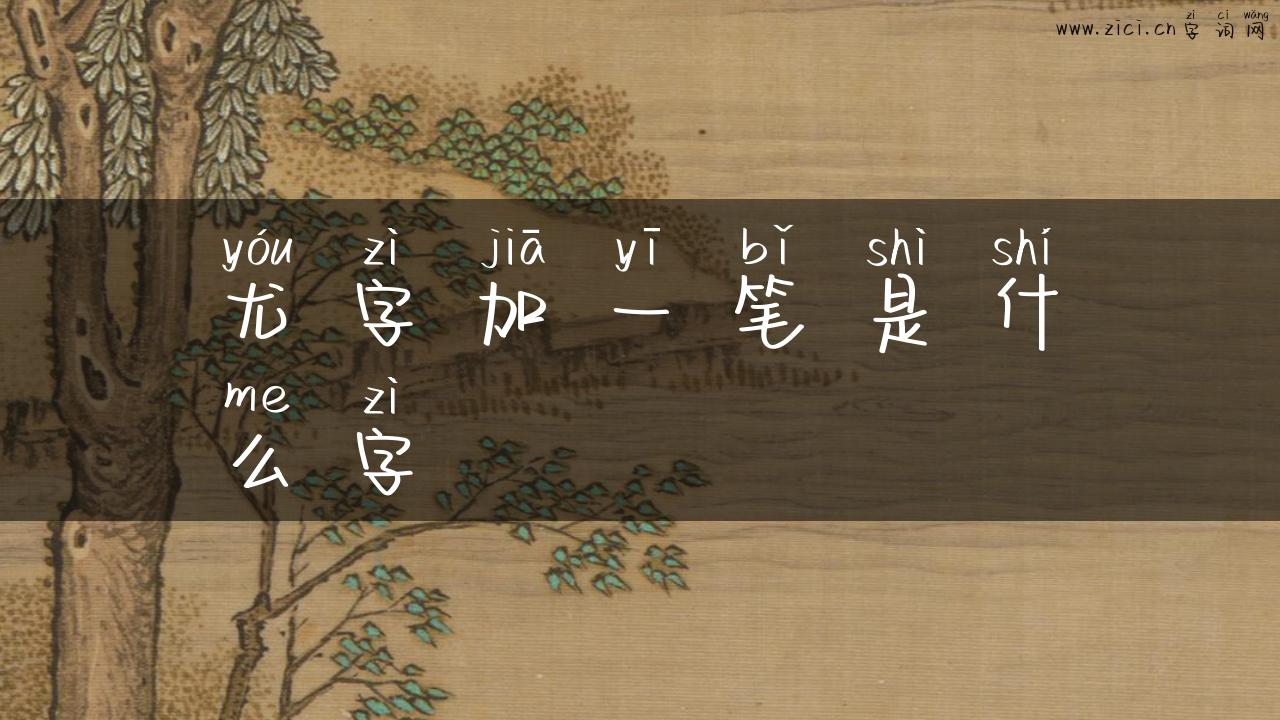 zì cí wǎng
www.zici.cn 字 词 网
yóu zì jiā yī bǐ shì shí
尤 字 加 一 笔 是 什
me zì
么 字